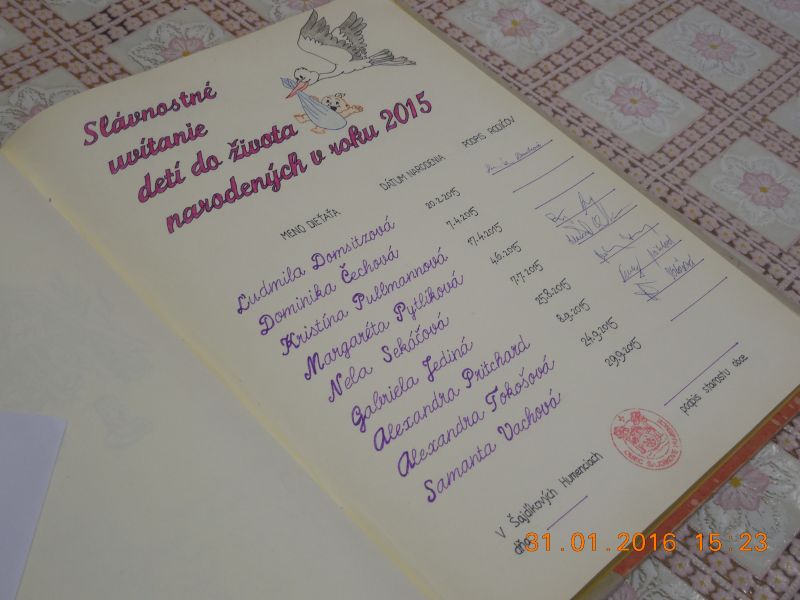 Slávnostné
uvítanie
detí do života
narodených v roku 2015
MENO DIEŤAŤA DÁTUM NARODENIA PODPIS RODIČOV
Ľudmila Domsitzová 20.2.2015
Dominika Čechová 7.4.2015
Kristína Pullmannová 17.4.2015
Margaréta Pytlíková 4.6.2015
Nela Sekáčová 7.7.2015
Gabriela Jediná 25.8.2015
Alexandra Pritchard 8.9.2015
Alexandra Tokošová 24.9.2015
Samanta Vachová 29.9.2015
V Šajdíkových Humenciach
dňa
podpis starostu obce
31.01.2016 15:23